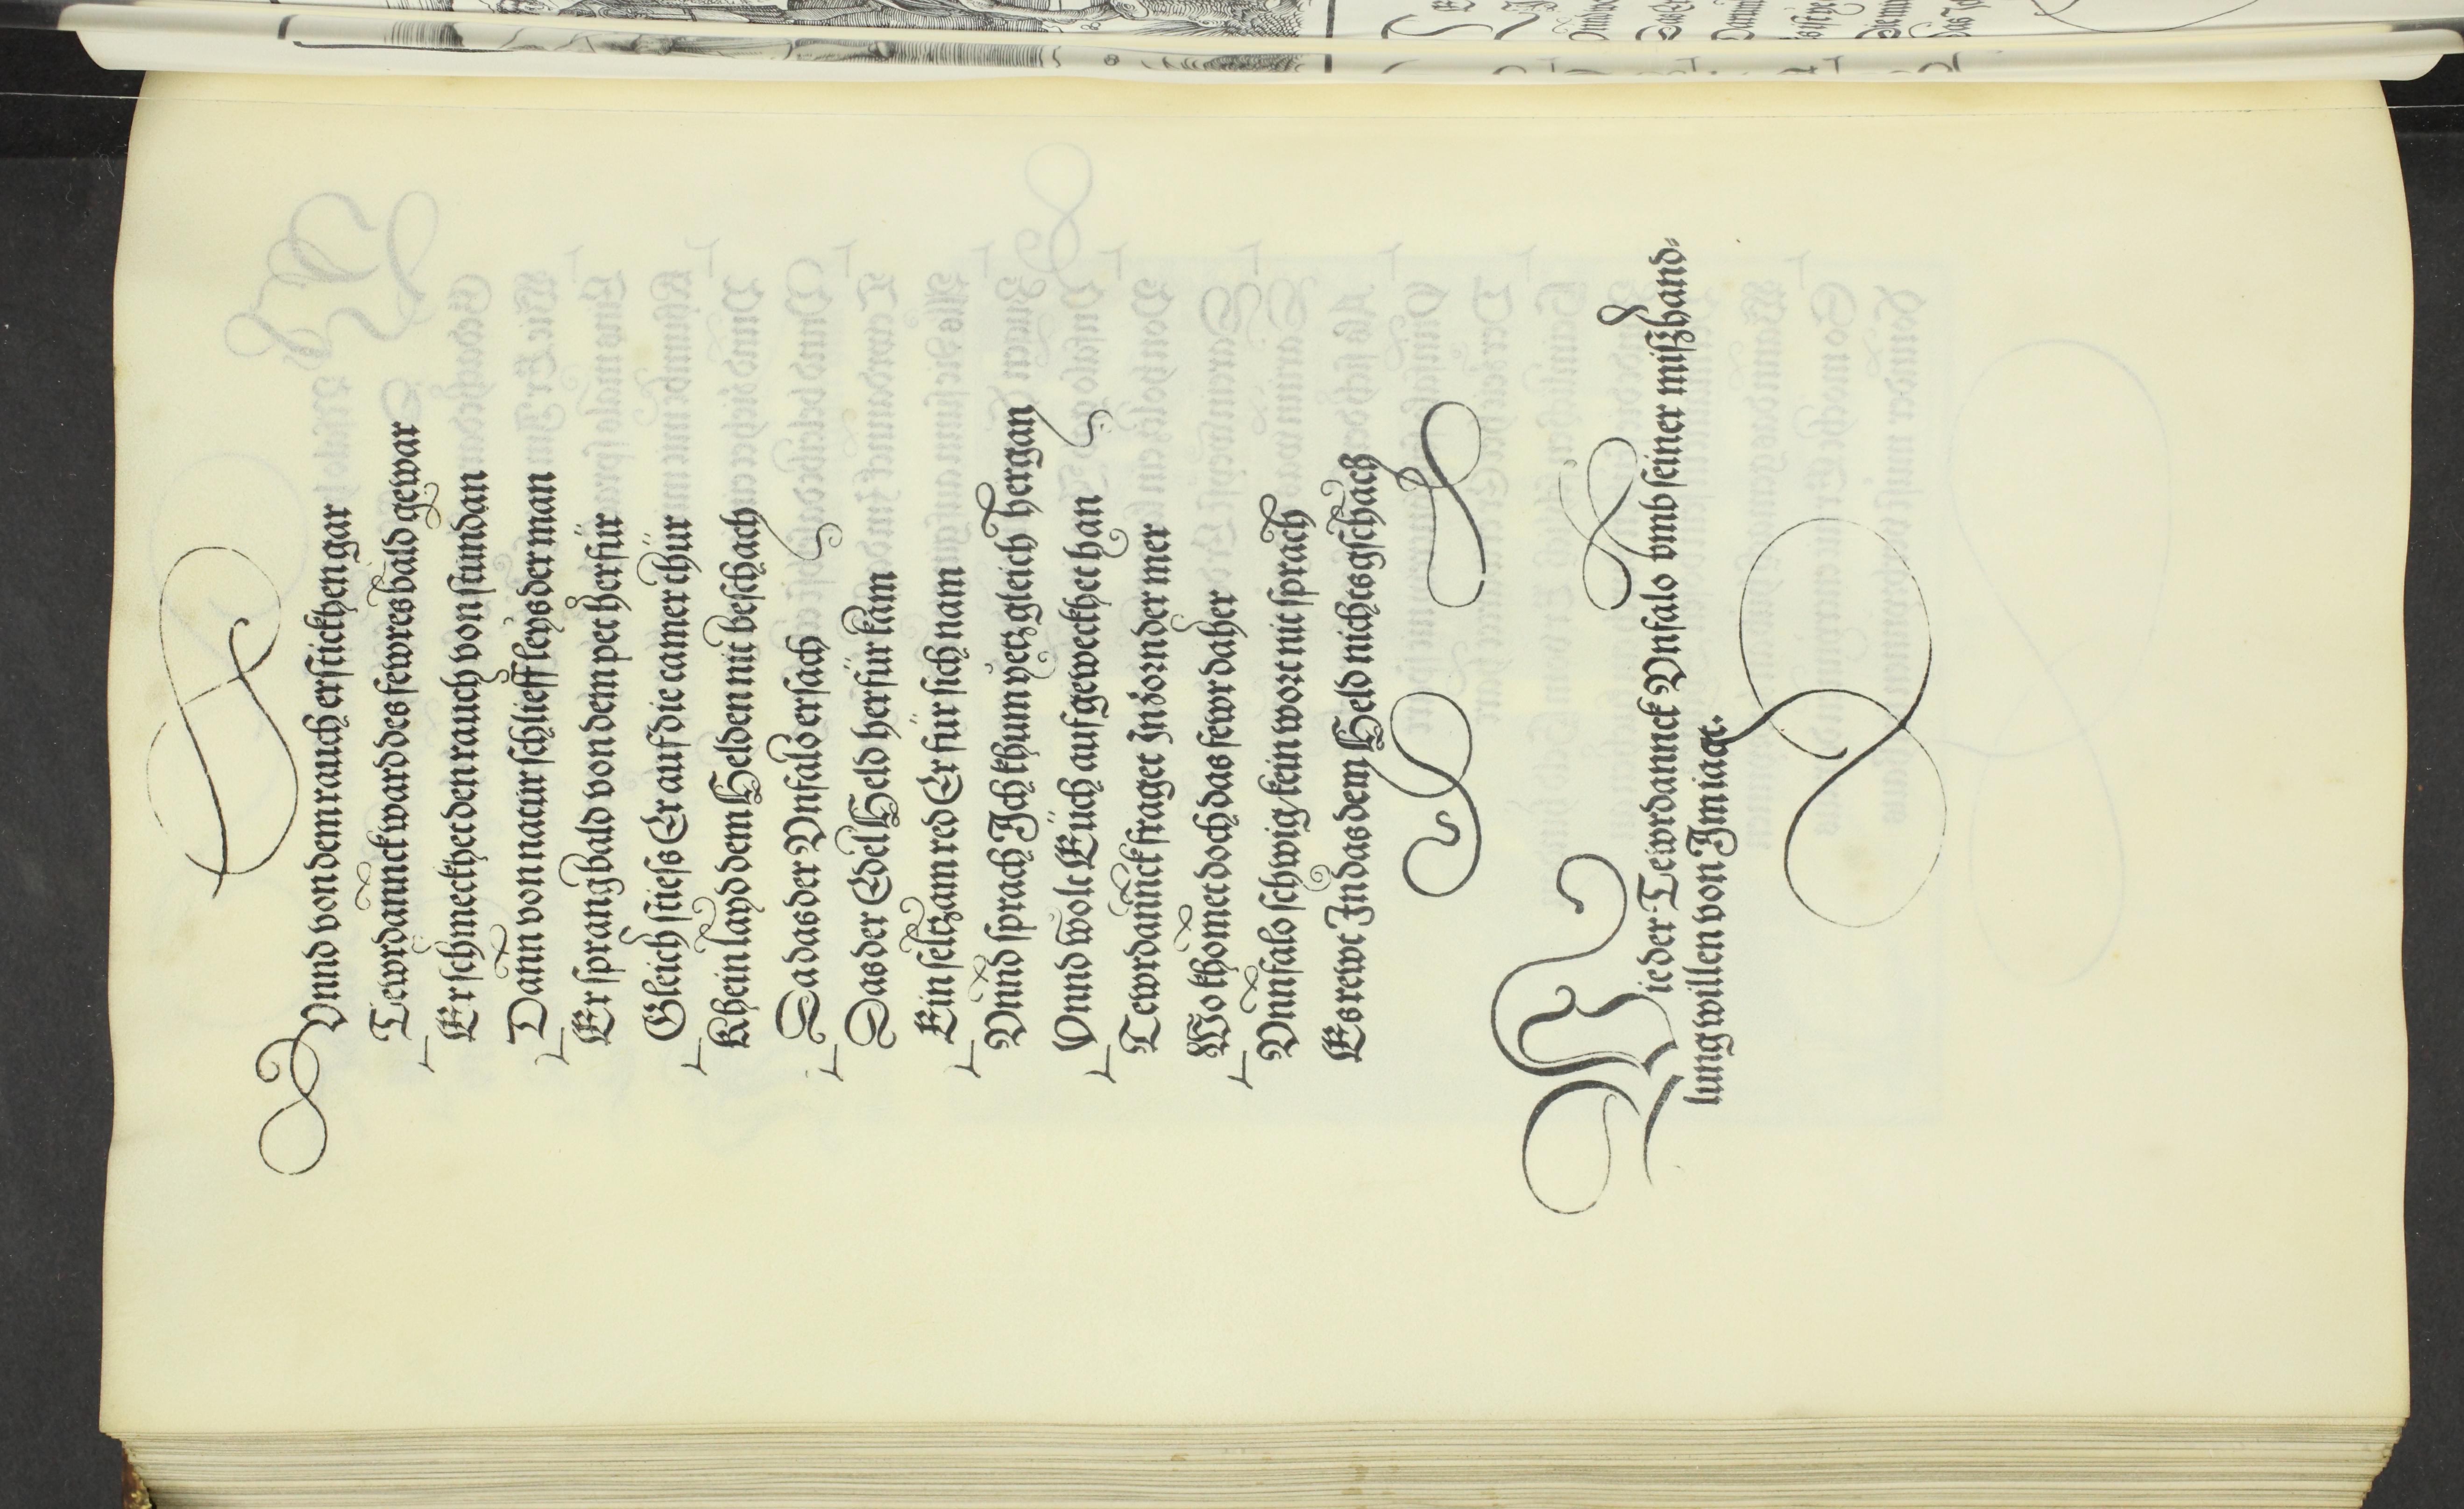 Vnnd von dem rauch ersticken gar
Tewrdannck ward des fewres bald gewar
Er schmeckhet den rauch von stundan
Dann von natur schlieff leys der man
Er sprang bald von dem pet herfür
Gleich stiess Er auf die camer thür
Khein layd dem Helden nit beschach
Da das der Vnfalo ersach
Das der Edel Held herfür kam
Ein seltzam red Er für sich nam
Vnnd sprach Ich khum yetz gleich hergan
Vnnd wolt Eüch aufgeweckhet han
Tewrdannck fraget In vornder mer
Wo khomet doch das fewr daher
Vnnfalo schwig kein wort nit sprach
Es rewt In das dem Held nichts gschach
Wie der Tewrdannck Vnfalo vmb seiner miszhand-
lung willen von Im iagt.